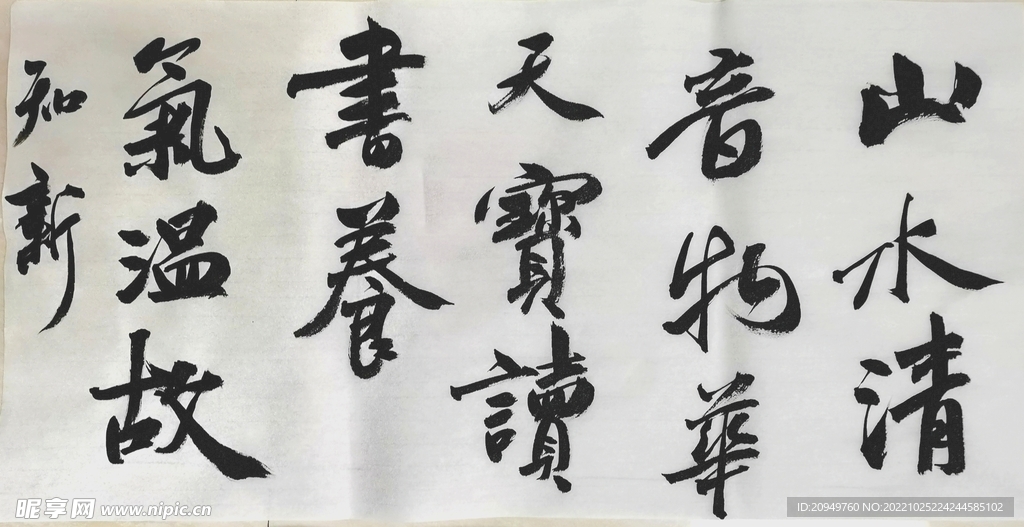 山水清
音物華
天寶讀
書養
氣温故
知新
昵享网 www.nipic.cn
ID:20949760 NO:20221025224244585102